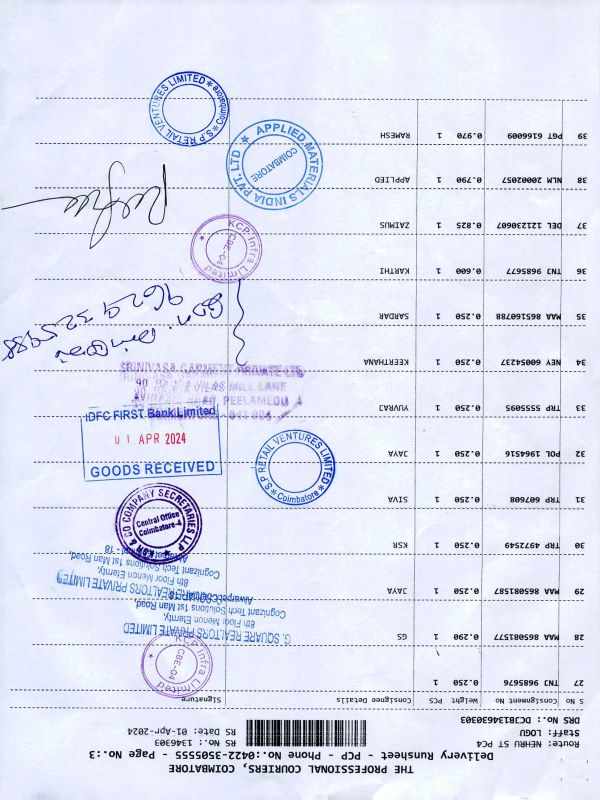 THE PROFESSIONAL COURIERS, COIMBATORE
Delivery Runsheet - PCP - Phone No.:0422-3505555 - Page No.:3
Route: NEHRU ST PC4
Staff: LOGU
DRS No.: DCJB1346303
RS No.: 1346303
RS Date: 01-Apr-2024
S No Consignment No Weight PCS Consignee Details Signature
27 TNJ 9685676 0.250 1
28 MAA 865081577 0.290 1 GS
29 MAA 865081587 0.250 1 JAYA
30 TRP 4972549 0.250 1 KSR
31 TRP 607608 0.250 1 SIVA
32 POL 1964516 0.250 1 JAYA
33 TRP 5555095 0.250 1 YUVRAJ
34 NEY 60054237 0.250 1 KEERTHANA
35 MAA 865160788 0.250 1 SARDAR
36 TNJ 9685677 0.600 1 KARTHI
37 DEL 121230607 0.825 1 ZAIMUS
38 NLM 20002057 0.790 1 APPLIED
39 PGT 6166009 0.970 1 RAMESH
KCP Infra Limited
CBE-04
G. SQUARE REALTORS PRIVATE LIMITED
8th Floor Menon Eternity,
Cognizant Tech Solutions 1st Main Road,
G. SQUARE REALTORS PRIVATE LIMITED
8th Floor Menon Eternity,
Cognizant Tech Solutions 1st Main Road,
KSR & CO COMPANY SECRETARIES LLP
Central Office
Coimbatore-4
S.P RETAIL VENTURES LIMITED
Coimbatore
IDFC FIRST Bank Limited
01 APR 2024
GOODS RECEIVED
SRINIVASA GARMENT PRIVATE LTD
MILL LANE
PEELAMEDU
KCP Infra Limited
CBE-04
APPLIED MATERIALS INDIA PVT. LTD
COIMBATORE
S.P RETAIL VENTURES LIMITED
Coimbatore